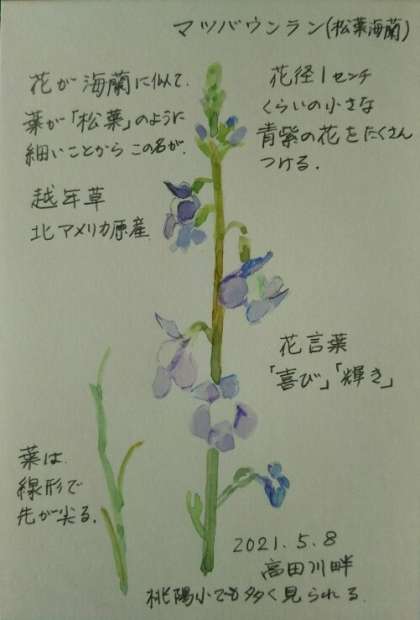 マツバウンラン(松葉海蘭)
花が海蘭に似て、
葉が「松葉」のように
細いことからこの名が、
越年草
北アメリカ原産
花径1センチ
くらいの小さな
青紫の花をたくさん
つける.
花言葉
「喜び」「輝き」
葉は
線形で
先が尖る.
2021.5.8
高田川畔
桃陽小でも多く見られる